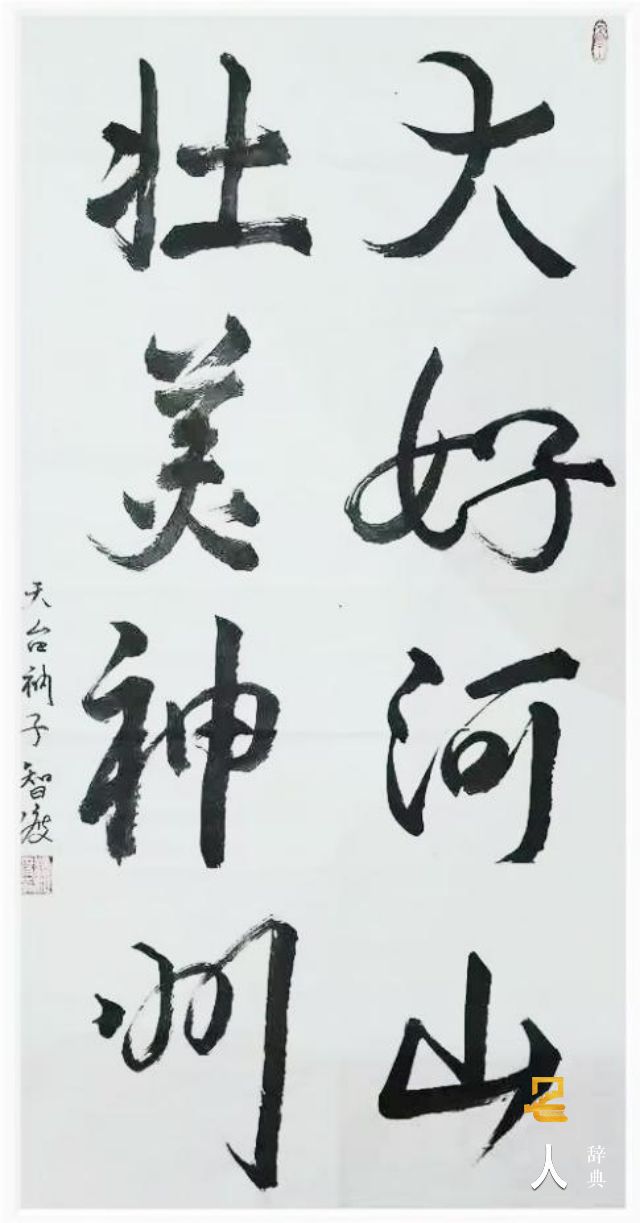 大好河山
壮美神州
天台衲子智度
名人
辞典